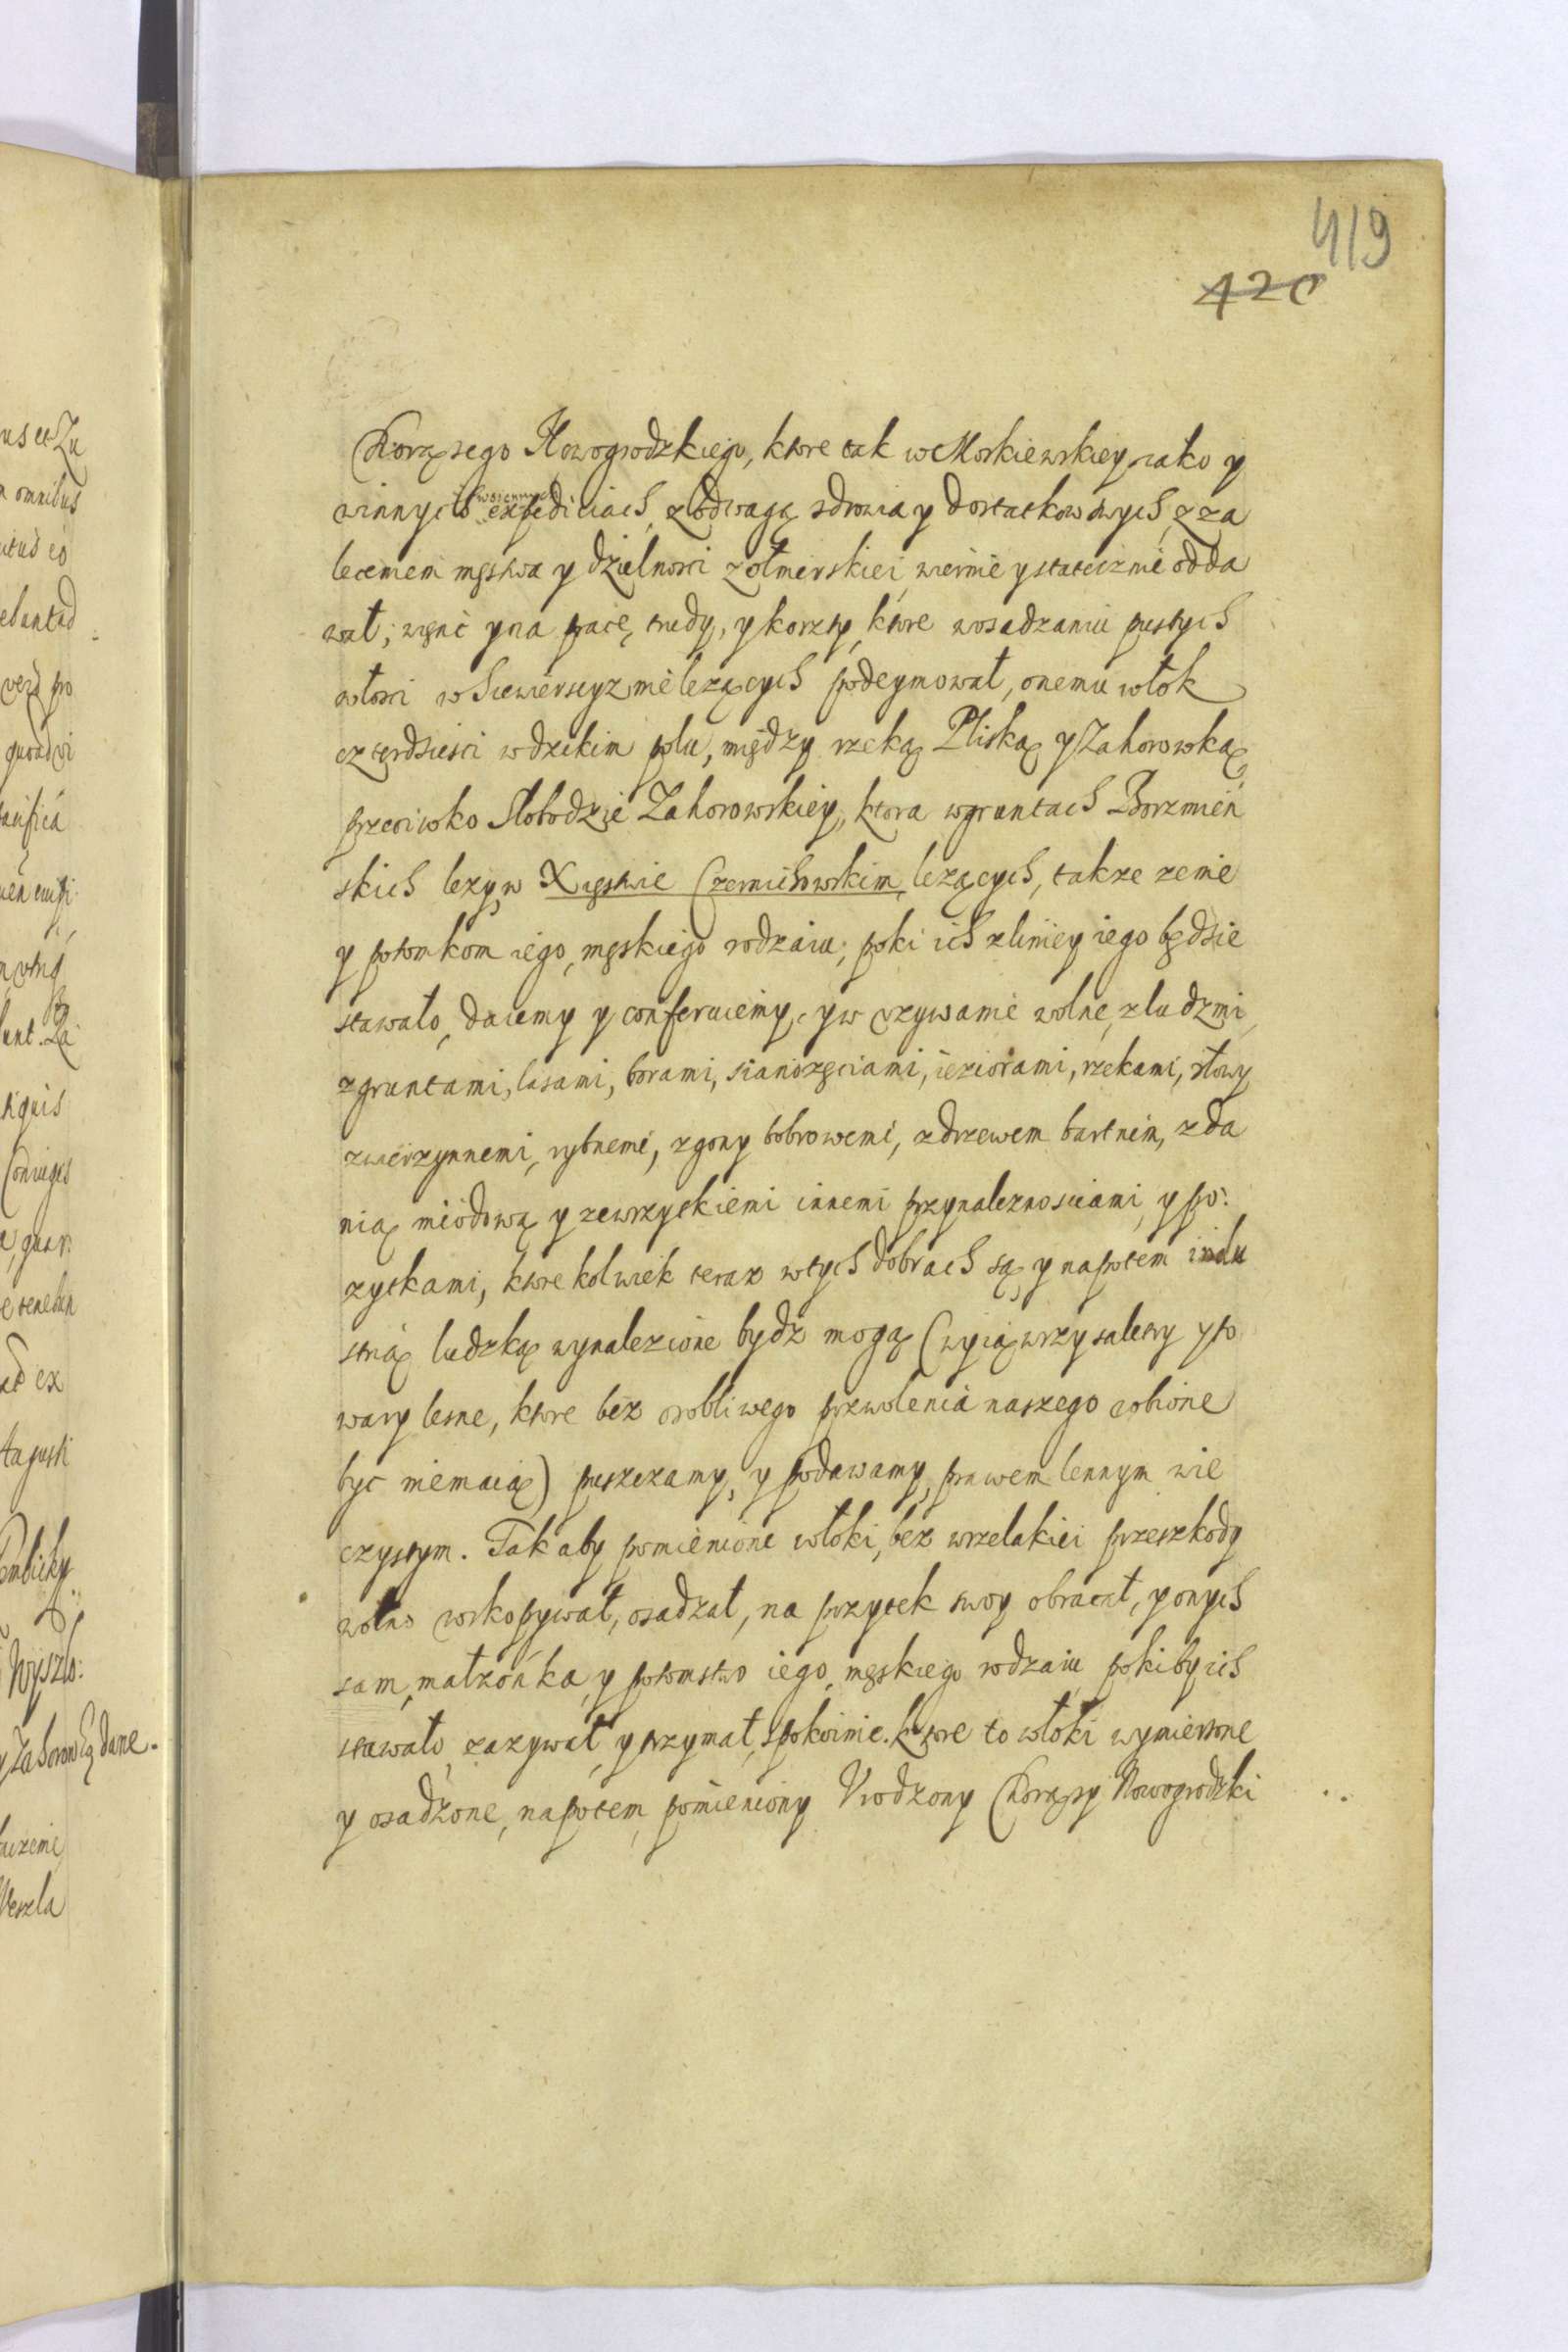 419
420
Chorązego Nowogrodzkiego, ktore tak w Moskiewskiey, iako y
winnych woiennych expediciach, z odwagą zdrowia y dostatkow swych, z za
leceniem męstwa y dzielnosci zołnierskiei, wiernie y statecznie odda
wał; więnc y na prace, trudy, y koszty, ktore w osadzaniu pustych
włosci w Siewierszyznie lezących podeymował, onemu włok
czterdziesci w dzikim polu, między rzeką Pliską y Zahorowką,
przeciwko Słobodzie Zahorowskiey, ktora w gruntach Borzmień
skich lezy, w Xięstwie Czernichowskim, lezących, takze zenie
y potomkom iego, męskiego rodzaiu, poki ich z liniey iego będzie
stawało, daiemy y conferuiemy, y w uzywanie wolne, z ludzmi,
z gruntami, lasami, borami, sianozęciami, ieziorami, rzekami, stowy
zwierzynnemi, rybnemi, z gony bobrowemi, z drzewem bartnim, z da
nią miodową y ze wszystkiemi innemi przynaleznosciami, y po:
zytkami, ktorekolwiek teraz w tych dobrach są, y napotem indu
strią ludzką wynalezione bydz mogą (wyiąwszy saletry y to
wary lesne, ktore bez osobliwego pozwolenia naszego robione
byc niemaią) puszczamy, y podawamy, prawem lennym wie
czystym. Tak aby pomienione włoki, bez wszelakiei przeszkody
wolno wskopywał, osadzał, na pozytek swoy obracał, y onych
sam, małzonka, y potomstwo iego, męskiego rodzaiu, pokiby ich
stawało, zazywał, y trzymał, spokoinie. Ktore to włoki wymierzone
y osadzone, napotem, pomieniony Urodzony Chorązy Nowogrodzki